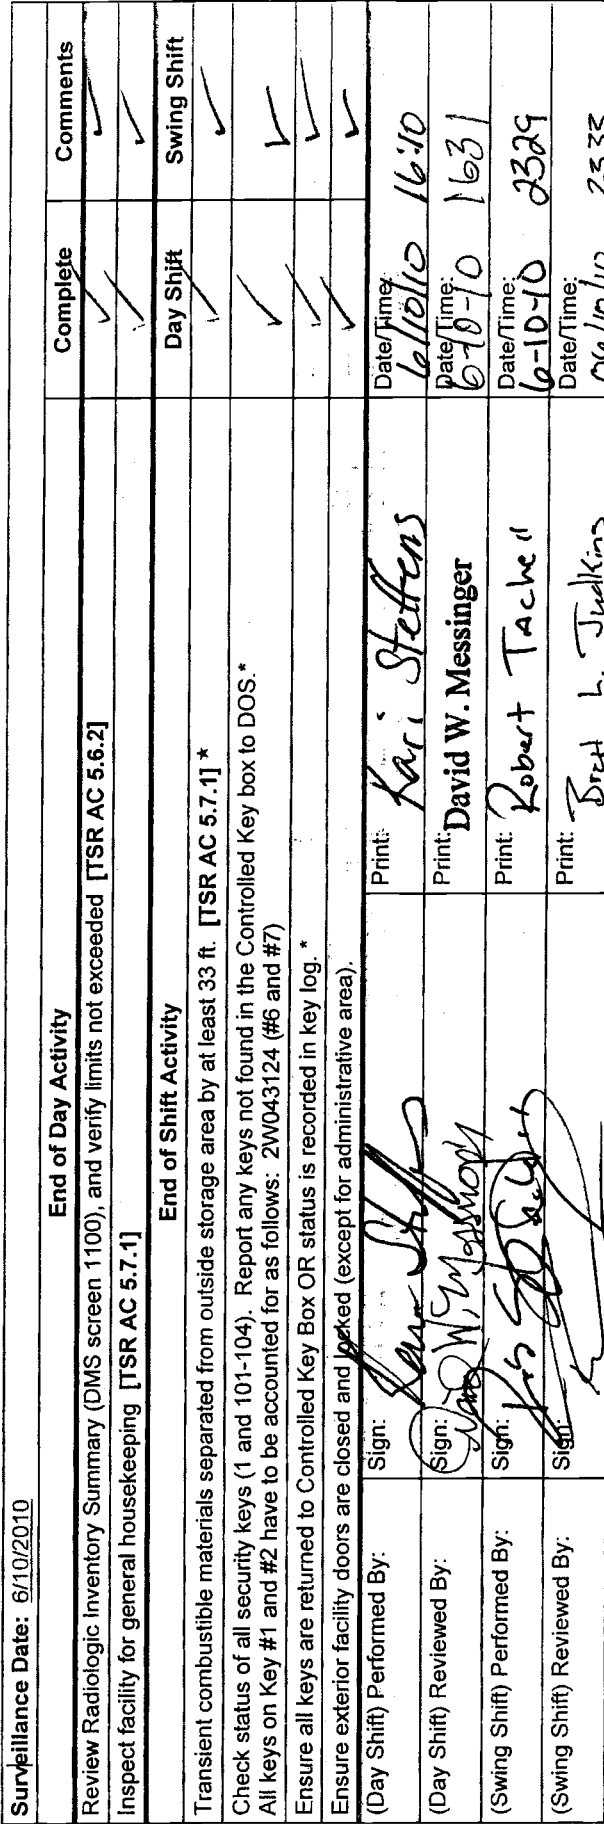 Surveillance Date: 6/10/2010
End of Day Activity Complete Comments
Review Radiologic Inventory Summary (DMS screen 1100), and verify limits not exceeded [TSR AC 5.6.2] ✓ ✓
Inspect facility for general housekeeping [TSR AC 5.7.1] ✓ ✓
End of Shift Activity Day Shift Swing Shift
Transient combustible materials separated from outside storage area by at least 33 ft. [TSR AC 5.7.1] * ✓ ✓
Check status of all security keys (1 and 101-104). Report any keys not found in the Controlled Key box to DOS.*
All keys on Key #1 and #2 have to be accounted for as follows: 2W043124 (#6 and #7) ✓ ✓
Ensure all keys are returned to Controlled Key Box OR status is recorded in key log. * ✓ ✓
Ensure exterior facility doors are closed and locked (except for administrative area). ✓ ✓
(Day Shift) Performed By: Sign: Print: Kari Steffens Date/Time: 6/10/10 16:10
(Day Shift) Reviewed By: Sign: David W. Messinger Print: David W. Messinger Date/Time: 6-10-10 1631
(Swing Shift) Performed By: Sign: Print: Robert Tachell Date/Time: 6-10-10 2329
(Swing Shift) Reviewed By: Sign: Print: Brett L. Judkins Date/Time: 06/10/10 2333